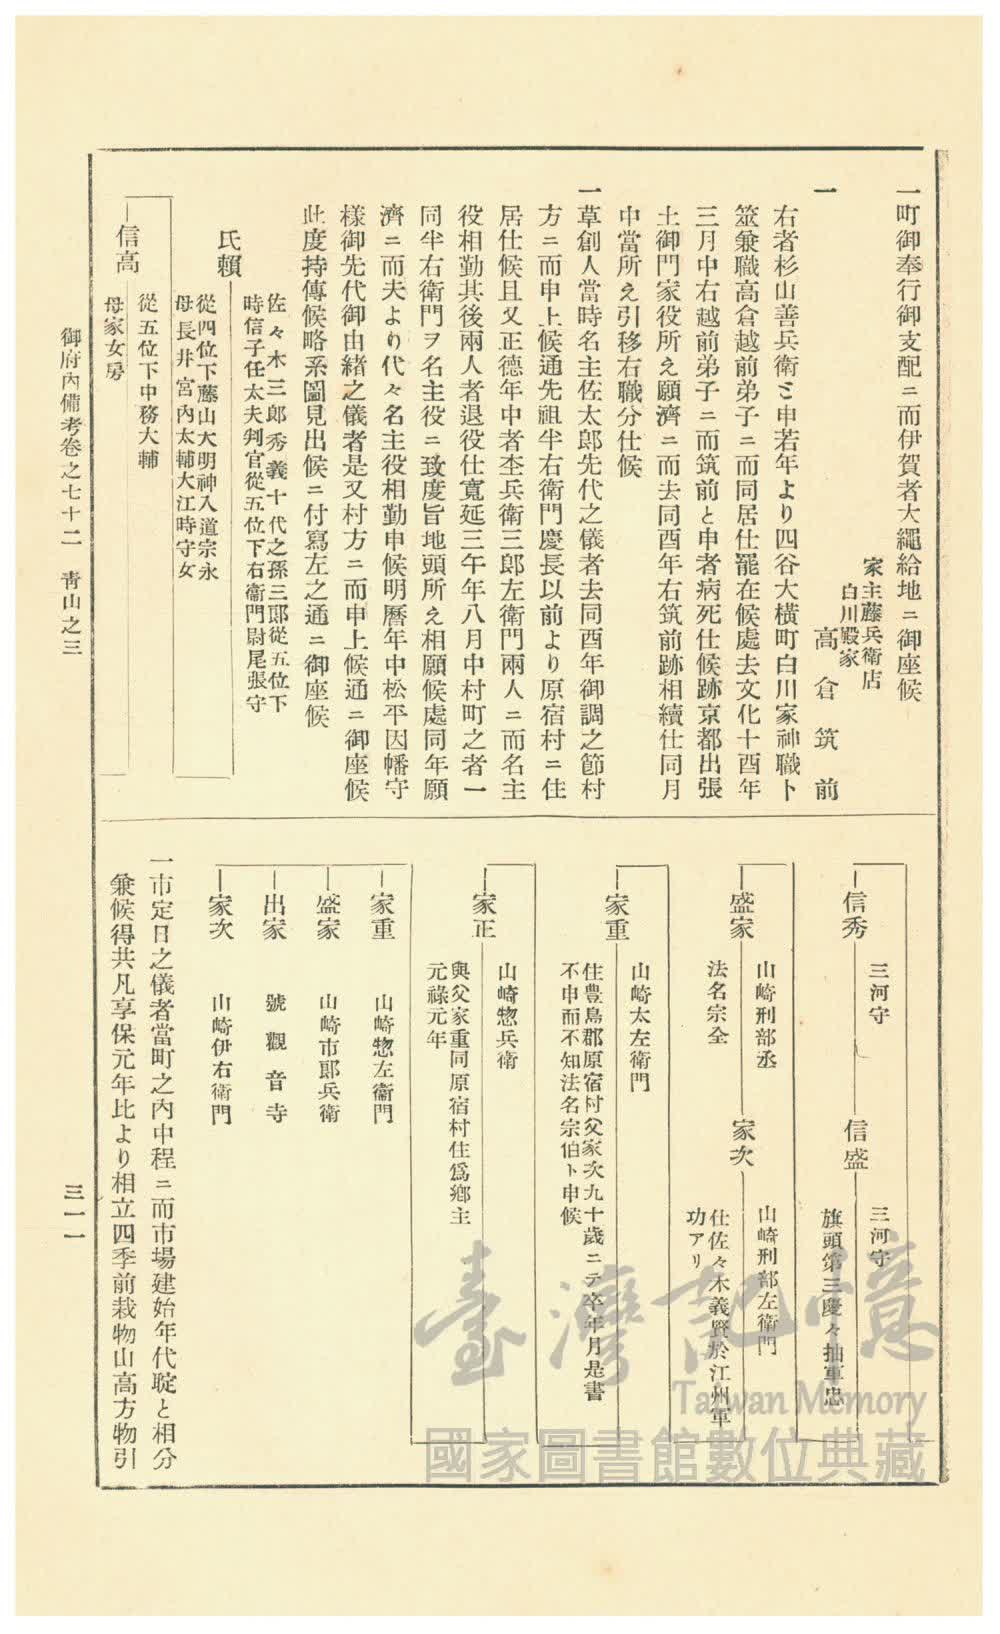 一町御奉行御支配ニ而伊賀者大繩給地ニ御座候
家主藤兵衛店
白川殿家
一　高倉筑前
右者杉山善兵衛と申若年より四谷大橫町白川家神職ト
竝兼職高倉越前弟子ニ而同居仕罷在候處去文化十酉年
三月中右越前弟子ニ而筑前と申者病死仕候跡京都出張
土御門家役所え願濟ニ而去同酉年右筑前跡相續仕同月
中當所え引移右職分仕候
一草創人當時名主佐太郎先代之儀者去同酉年御調之節村
方ニ而申上候通先祖半右衛門慶長以前より原宿村ニ住
居仕候且又正德年中者杢兵衛三郎左衛門兩人ニ而名主
役相勤其後兩人者退役仕寬延三午年八月中村町之者一
同半右衛門ヲ名主役ニ致度旨地頭所え相願候處同年願
濟ニ而夫より代々名主役相勤申候明曆年中松平因幡守
樣御先代御由緖之儀者是又村方ニ而申上候通ニ御座候
此度持傳候略系圖見出候ニ付寫左之通ニ御座候
佐々木三郎秀義十代之孫三郎從五位下
時信子任太夫判官從五位下右衛門尉尾張守
氏賴
從四位下藤山大明神入道宗永
母長井宮內太輔大江時守女
信高
從五位下中務大輔
母家女房
信秀
三河守
信盛
三河守
旗頭第三慶々抽軍忠
盛家
山崎刑部丞
法名宗全
家次
山崎刑部左衛門
仕佐々木義賢於江州軍
功アリ
家重
山崎太左衛門
住豊島郡原宿村父家次九十歲ニテ卒年月是書
不申而不知法名宗伯ト申候
家正
山崎惣兵衛
與父家重同原宿村住爲鄕主
元祿元年
家重
山崎惣左衛門
盛家
山崎市郞兵衛
出家
號觀音寺
家次
山崎伊右衛門
一市定日之儀者當町之內中程ニ而市場建始年代聢と相分
兼候得共凡享保元年比より相立四季前栽物山高方物引
御府內備考卷之七十二　靑山之三
三一一
臺灣記憶
Taiwan Memory
國家圖書館數位典藏